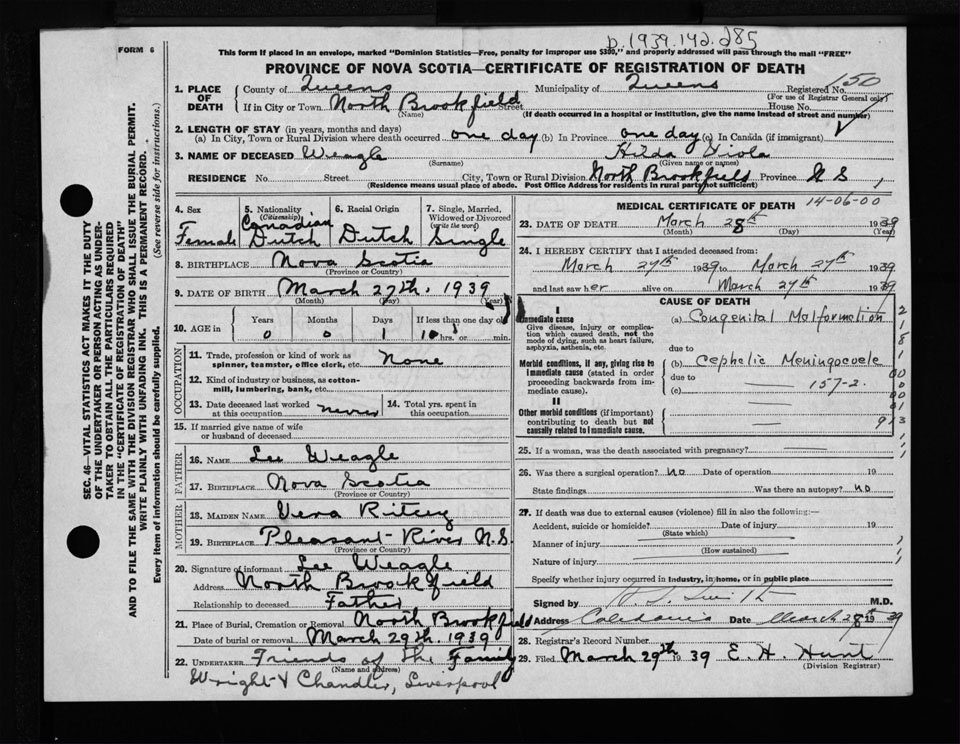 D.1939.142.285
FORM 6
This form if placed in an envelope, marked "Dominion Statistics—Free, penalty for improper use $300," and properly addressed will pass through the mail "FREE"
PROVINCE OF NOVA SCOTIA—CERTIFICATE OF REGISTRATION OF DEATH
1. PLACE OF DEATH County of Queens Municipality of Queens Registered No. 150
(For use of Registrar General only)
If in City or Town North Brookfield Street House No.
(Name) (If death occurred in a hospital or institution, give the name instead of street and number)
2. LENGTH OF STAY (in years, months and days)
(a) In City, Town or Rural Division where death occurred one day (b) In Province one day (c) In Canada (if immigrant)
3. NAME OF DECEASED Weagle Hilda Viola
(Surname) (Given name or names)
RESIDENCE No. Street City, Town or Rural Division North Brookfield Province N S
(Residence means usual place of abode. Post Office Address for residents in rural parts not sufficient)
4. Sex Female
5. Nationality (Citizenship) Canadian Dutch
6. Racial Origin Dutch
7. Single, Married, Widowed or Divorced (write the word) Single
8. BIRTHPLACE Nova Scotia
(Province or Country)
9. DATE OF BIRTH March 27th. 1939
(Month) (Day) (Year)
10. AGE in Years Months Days If less than one day old
0 0 1 10 hrs. or min.
OCCUPATION
11. Trade, profession or kind of work as spinner, teamster, office clerk, etc. None
12. Kind of industry or business, as cotton-mill, lumbering, bank, etc.
13. Date deceased last worked at this occupation never
14. Total yrs. spent in this occupation
15. If married give name of wife or husband of deceased
FATHER
16. Name Lee Weagle
17. Birthplace Nova Scotia
(Province or Country)
MOTHER
18. Maiden Name Vera Ritcey
19. Birthplace Pleasant River N.S.
(Province or Country)
20. Signature of informant Lee Weagle
Address North Brookfield
Relationship to deceased Father
21. Place of Burial, Cremation or Removal North Brookfield
Date of burial or removal March 29th. 1939
22. Undertaker Friends of the Family
(Name and address)
Wright & Chandler, Liverpool
MEDICAL CERTIFICATE OF DEATH 14-06-00
23. DATE OF DEATH March 28th 1939
(Month) (Day) (Year)
24. I HEREBY CERTIFY that I attended deceased from:
March 27th 1939 to March 27th 1939
and last saw her alive on March 27th 1939
CAUSE OF DEATH
I
Immediate cause
Give disease, injury or complication which caused death, not the mode of dying, such as heart failure, asphyxia, asthenia, etc.
(a) Congenital Malformation
due to
Morbid conditions, if any, giving rise to immediate cause (stated in order proceeding backwards from immediate cause)
(b) Cephalic Meningocoele
due to
(c) 157-2.
II
Other morbid conditions (if important) contributing to death but not causally related to immediate cause.
25. If a woman, was the death associated with pregnancy?
26. Was there a surgical operation? no Date of operation 19
State findings Was there an autopsy? no
27. If death was due to external causes (violence) fill in also the following:—
Accident, suicide or homicide? Date of injury 19
(State which)
Manner of injury
(How sustained)
Nature of injury
Specify whether injury occurred in industry, in home, or in public place
Signed by M.D.
Address Caledonia Date March 28th 1939
28. Registrar's Record Number
29. Filed March 29th 1939 E. H. Hunt
(Division Registrar)
SEC. 46—VITAL STATISTICS ACT MAKES IT THE DUTY
OF THE UNDERTAKER OR PERSON ACTING AS UNDER-
TAKER TO OBTAIN ALL THE PARTICULARS REQUIRED
IN THE "CERTIFICATE OF REGISTRATION OF DEATH"
AND TO FILE THE SAME WITH THE DIVISION REGISTRAR WHO SHALL ISSUE THE BURIAL PERMIT.
WRITE PLAINLY WITH UNFADING INK. THIS IS A PERMANENT RECORD.
Every item of information should be carefully supplied. (See reverse side for instructions.)